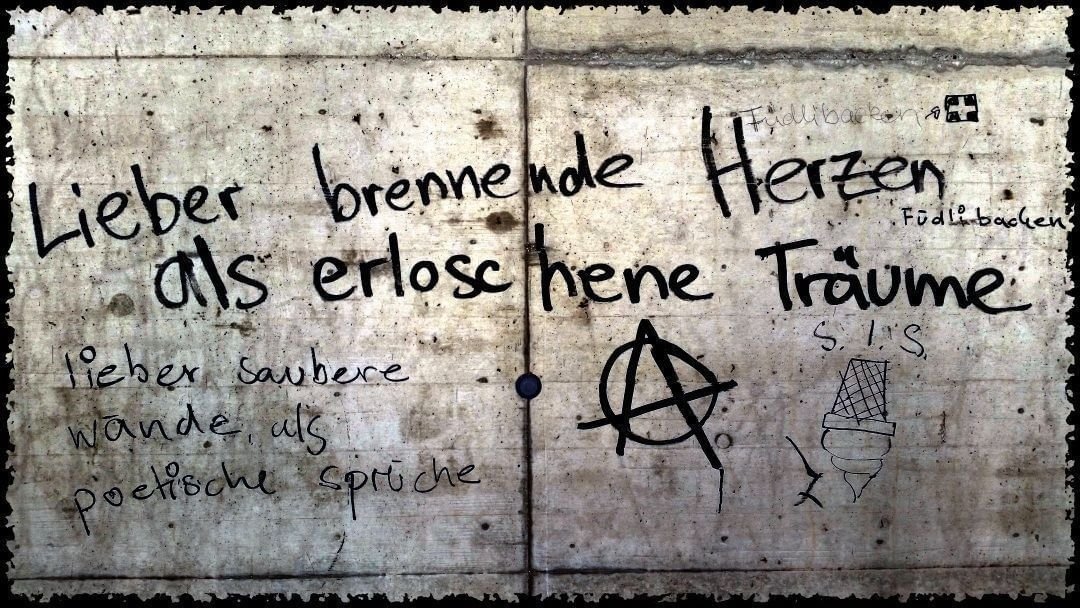 Füdlibacken
Lieber brennende Herzen
Füdlibacken
als erloschene Träume
S. I. S.
lieber saubere
wände, als
poetische sprüche
A